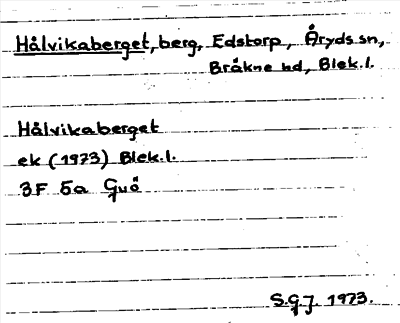 Hålvikaberget, berg, Edstorp, Åryds sn,
Bräkne hd, Blek.l.
Hålvikaberget
ek (1973) Blek.l.
3F 5a Guö
S.G.J. 1973.